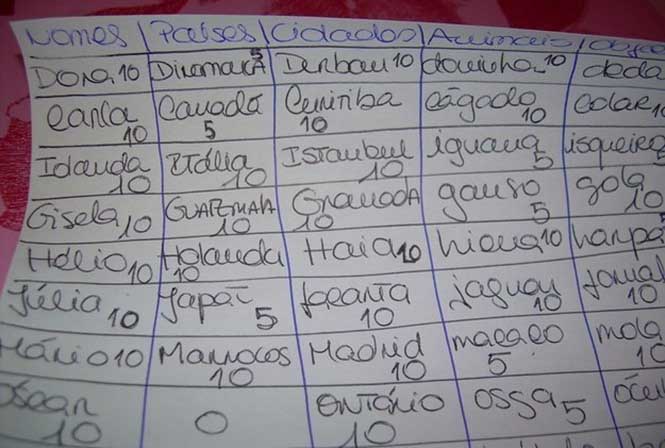 Nomes Países Cidades Animais
Dora 10 Dinamarca 5 Durban 10 doninha 10 deda
Carla 10 Canadá 5 Curitiba 10 cágado 10 colar 10
Iolanda 10 Itália 10 Istambul 10 iguana 5 isqueiro
Gisela 10 Guatemala 10 Granada 10 ganso 5 gola 10
Hélio 10 Holanda 10 Haia 10 hiena 10 harpa
Júlia 10 Japão 5 Jacarta 10 jaguar 10 jornal 10
Mário 10 Marrocos 10 Madrid 10 macaco 5 mola 10
Óscar 10 0 Ontário 10 ossa 5 ócu